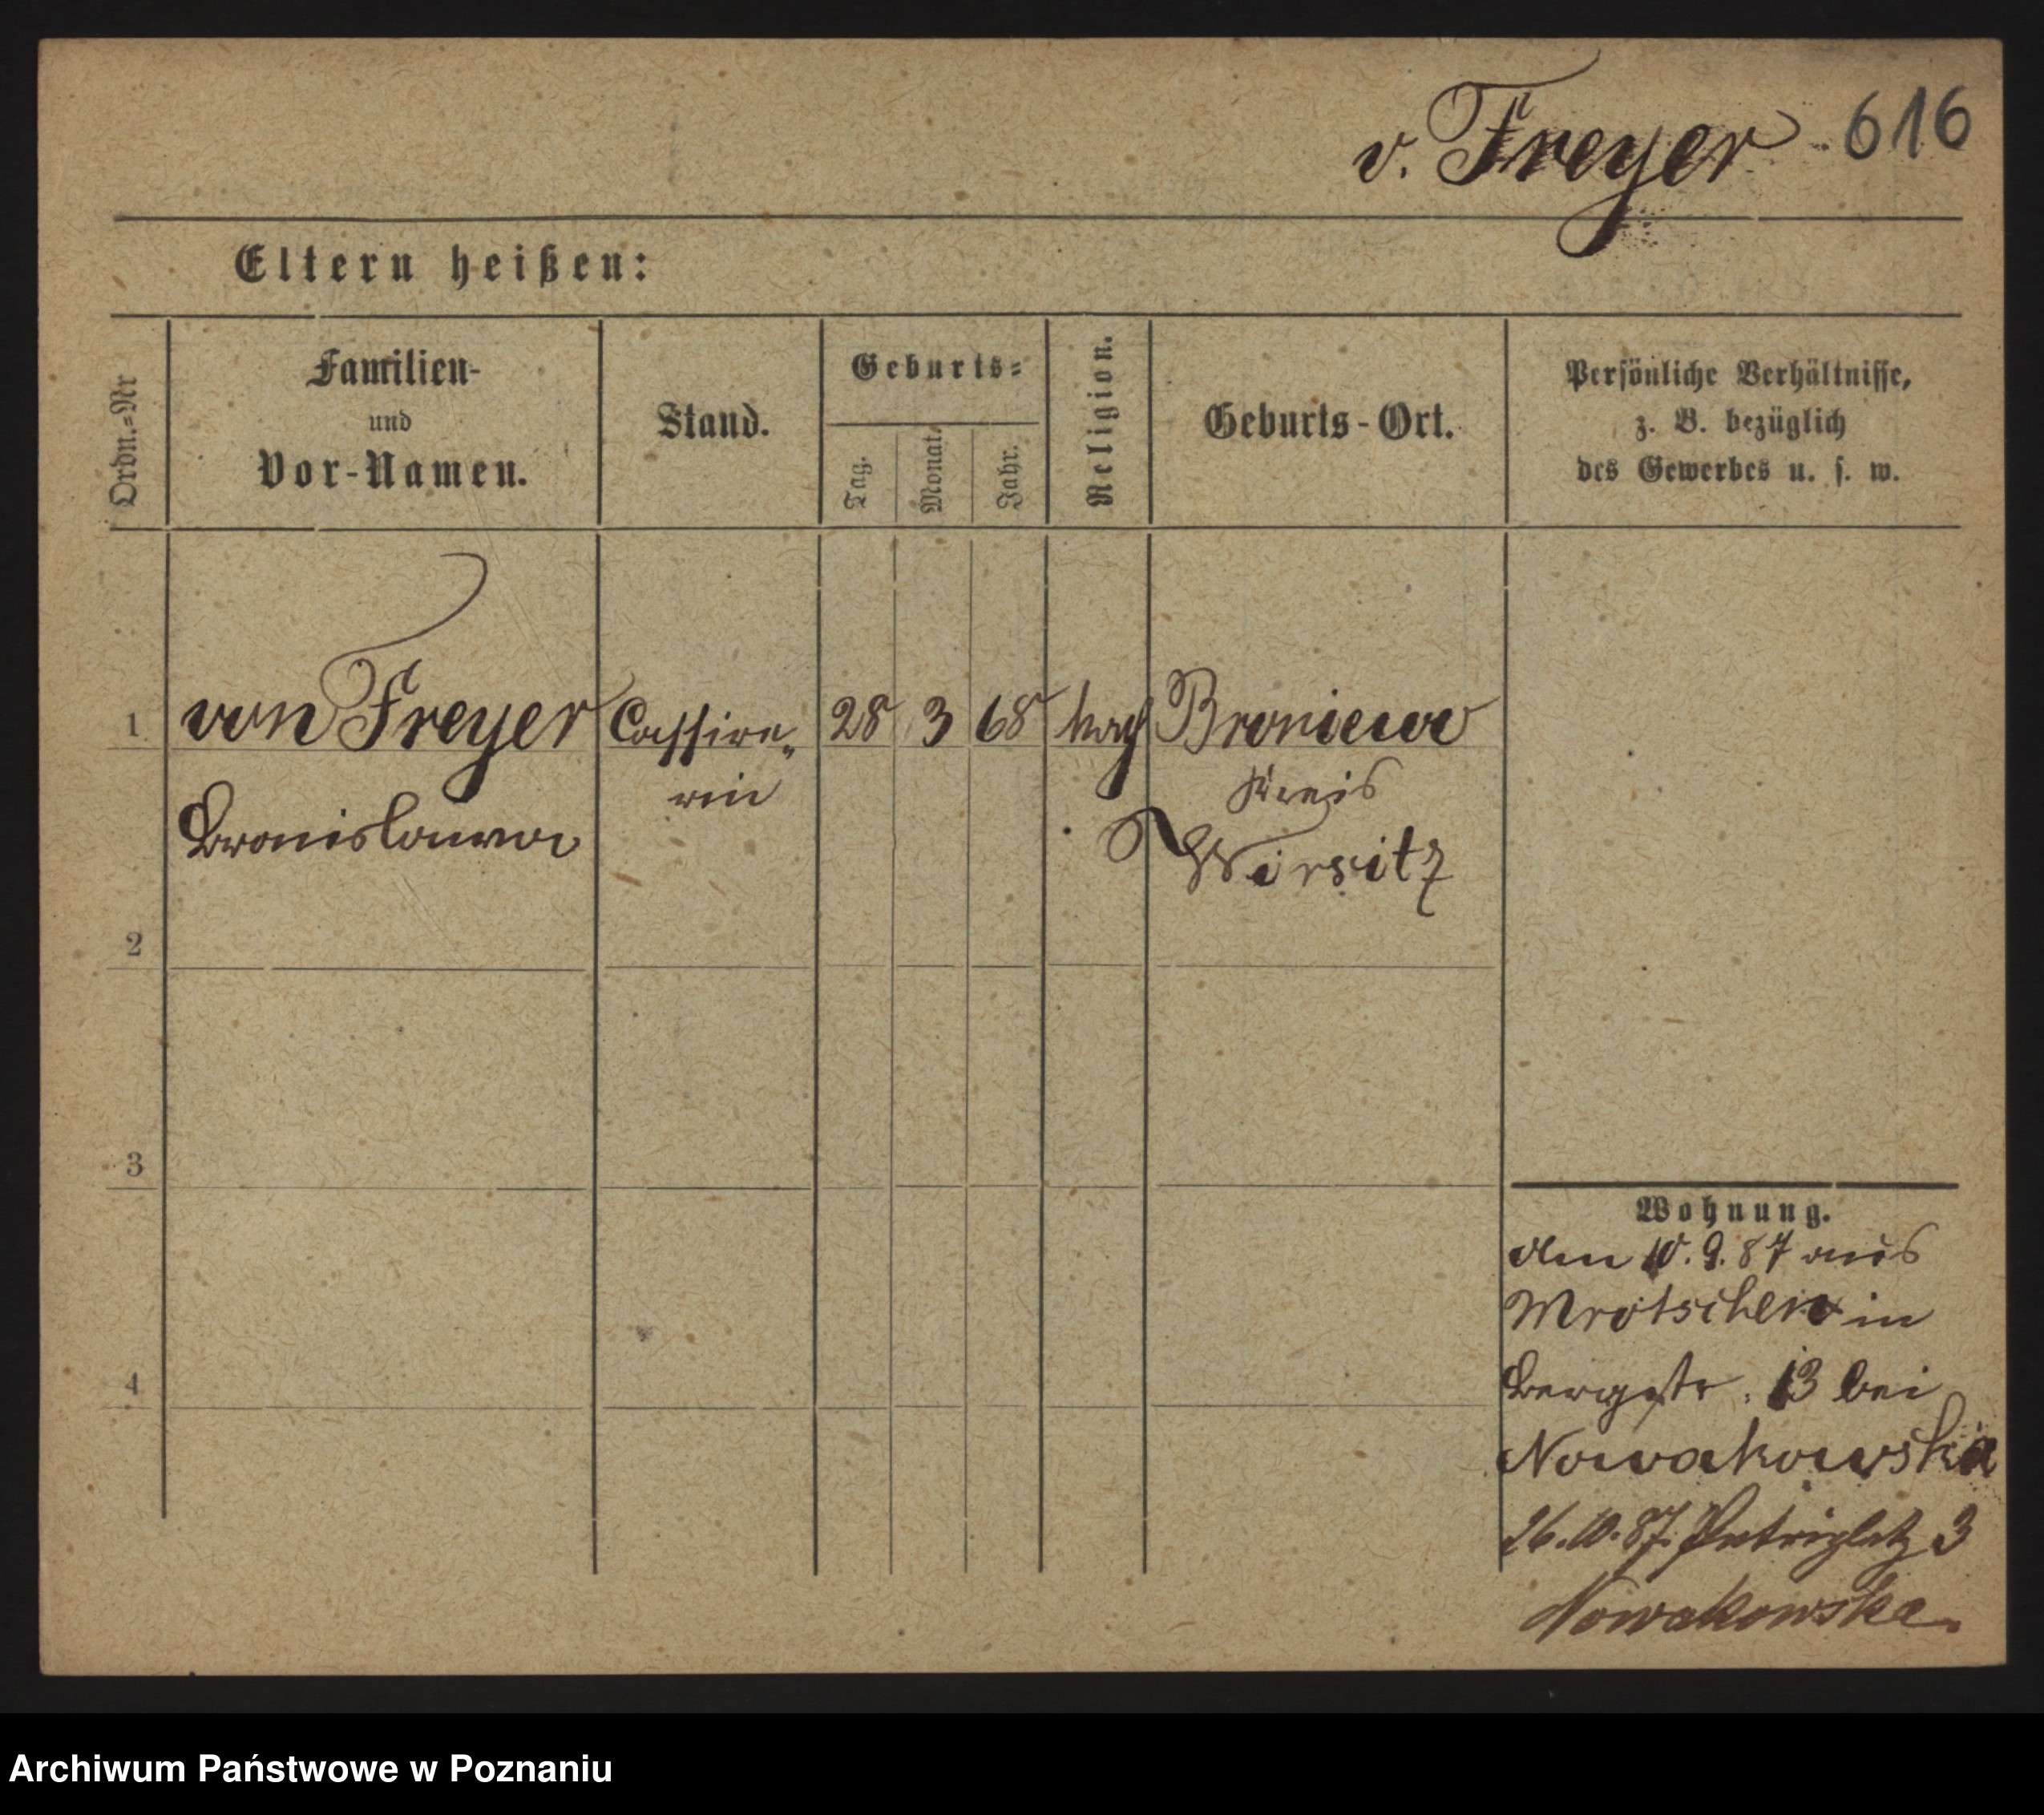 v. Freyer 616
Eltern heißen:
Ordn.=Nr
Familien-
und
Vor-Namen.
Stand.
Geburts=
Tag.
Monat.
Jahr.
Religion.
Geburts-Ort.
Persönliche Verhältnisse,
z. B. bezüglich
des Gewerbes u. s. w.
1 von Freyer Cassire„ 28 3 68 Broniewo
rin Kreis
Bronislawa Wirsitz
2
3
4
Wohnung.
Am 10. 9. 87 aus
Mrotschen in
Bergstr. 13 bei
Nowakowska
26. 10. 87. Petriplatz 3
Nowakowska.
Archiwum Państwowe w Poznaniu